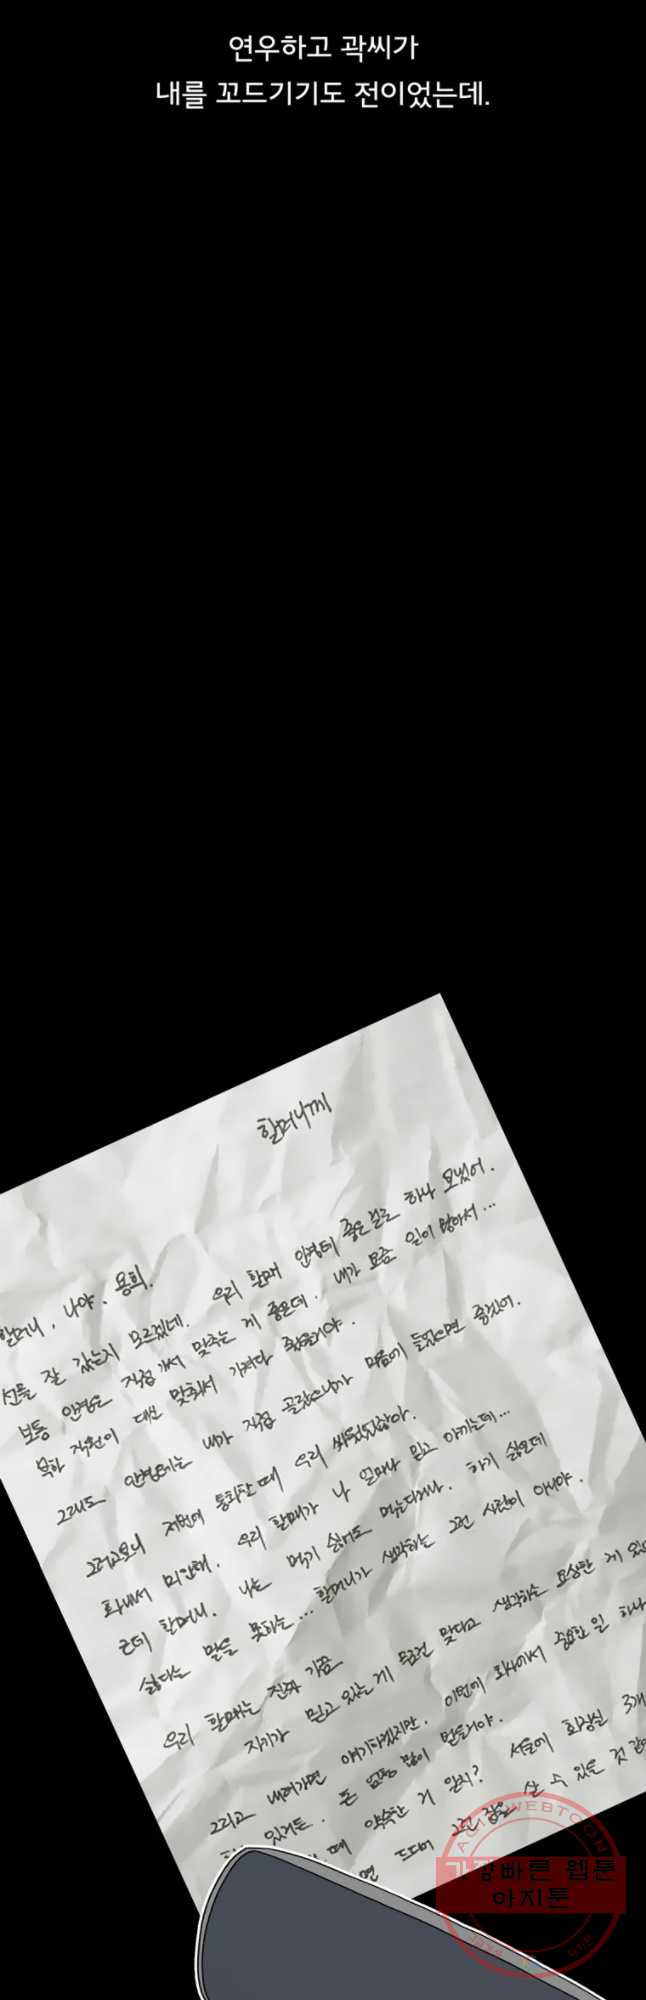 연우하고 곽씨가
내를 꼬드기기도 전이었는데.
할머니께
할머니, 나야. 용희.
우리 할매 안경테 좋은 걸로 하나 보냈어.
선물 잘 갔는지 모르겠네.
보통 안경은 직접 가서 맞추는 게 좋은데. 내가 요즘 일이 많아서...
북한 직원이 대신 맞춰서 가져다 줬을거야.
그래도 안경테는 내가 직접 골랐으니까 마음에 들었으면 좋겠어.
그러고보니 저번에 통화할 때 우리 싸웠었잖아.
화내서 미안해. 우리 할매가 나 얼마나 믿고 아끼는데...
근데 할머니. 나는 먹기 싫어도 먹는다거나. 하기 싫은데
싫다는 말을 못하는... 할머니가 생각하는 그런 사람이 아니야.
우리 할매는 진짜 가끔
자기가 믿고 있는 게 무조건 맞다고 생각하는 요상한 게 있
그리고 내려가면 얘기하겠지만. 이번에 회사에서 중요한 일 하나
있거든. 돈 엄청 많이 벌들거야.
때 약속한 거 알지? 서울에 화장실 3개
면 드디어 그런 집을 살 수 있을 것 같
AGIT WEBTOON
가장빠른 웹툰
아지툰